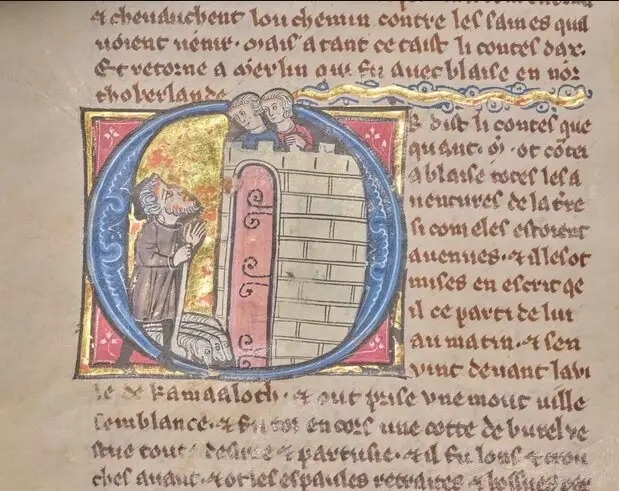 & cheuauchent lou chemin contre les saines quil
uoient uenir. Mais a tant ce taist li contes dax.
Et retorne a Merlin qui fu auec blaise en nor
thoberlande
R dist li contes que
quant. M. ot conte
a blaise totes les a
uentures de la tre
si com eles estoient
auenues. & il les ot
mises en escrit qe
il ce parti de lui
au matin. & sen
uint deuant la ui
le de Kamaaloch. & out prise une mout uille
semblance. & fu toz encors une cotte de burel ue
stue toute desirre & partusie. & il fu lons & crou
ches auant. & ot les espaules retraites &